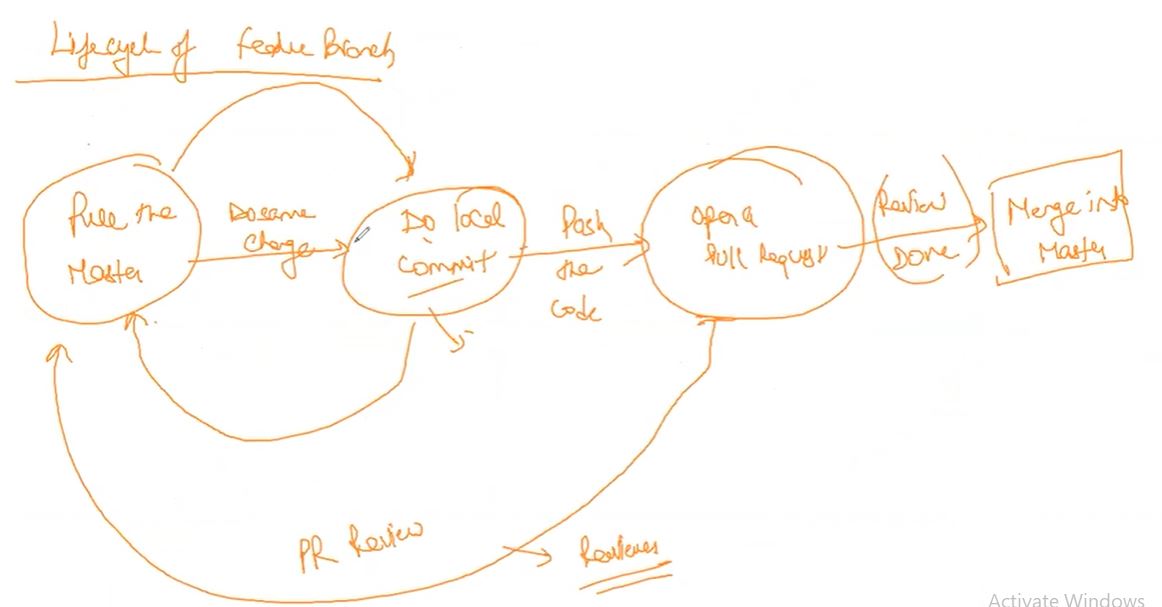 Lifecycle of Feature Branch
Pull the
Master
Do some
Change
Do local
Commit
Push
the
Code
Open a
Pull Request
Review
Done
Merge into
Master
PR Review
Reviewers
Activate Windows